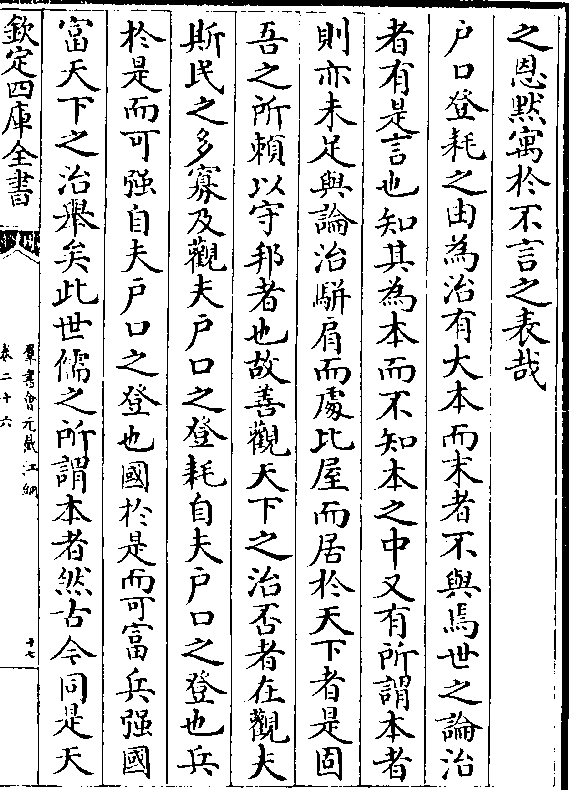 之恩黙寓於不言之表哉
户口登耗之由為治有大本而末者不與焉世之論治
者有是言也知其為本而不知本之中又有所謂本者
則亦未足與論治駢肩而處比屋而居於天下者是固
吾之所賴以守邦者也故善觀天下之治否者在觀夫
斯民之多寡及觀夫户口之登耗自夫户口之登也兵
於是而可强自夫户口之登也國於是而可富兵强國
富天下之治舉矣此世儒之所謂本者然古今同是天
欽定四庫全書
羣書會元截江網
卷二十六
十七